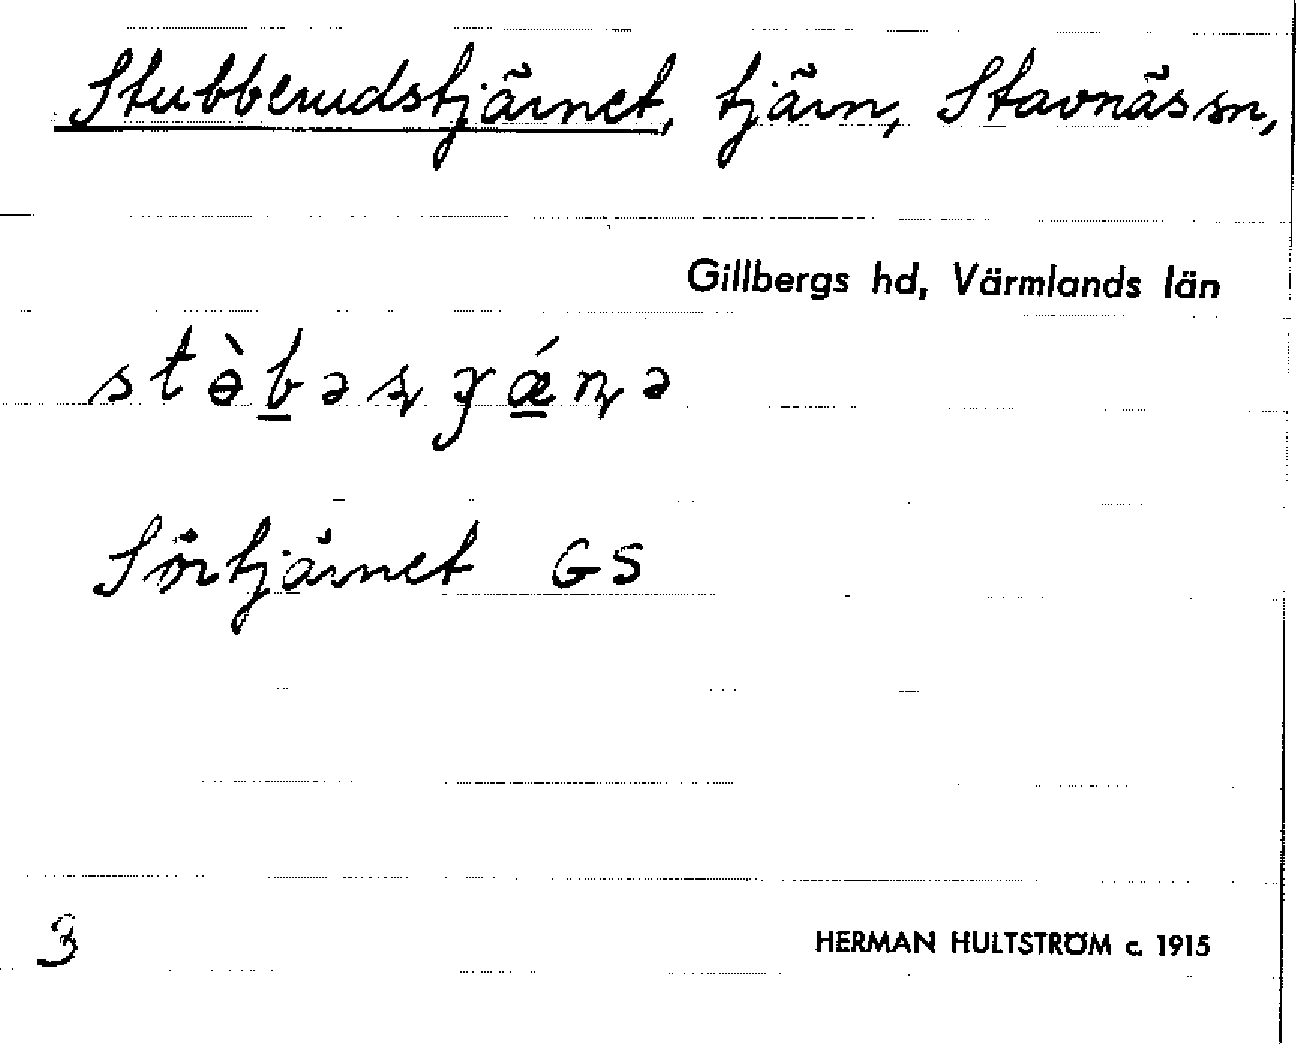 Stubberudstjärnet, tjärn, Stavnäs sn,
Gillbergs hd, Värmlands län
Sörtjärnet GS
3
HERMAN HULTSTRÖM c. 1915